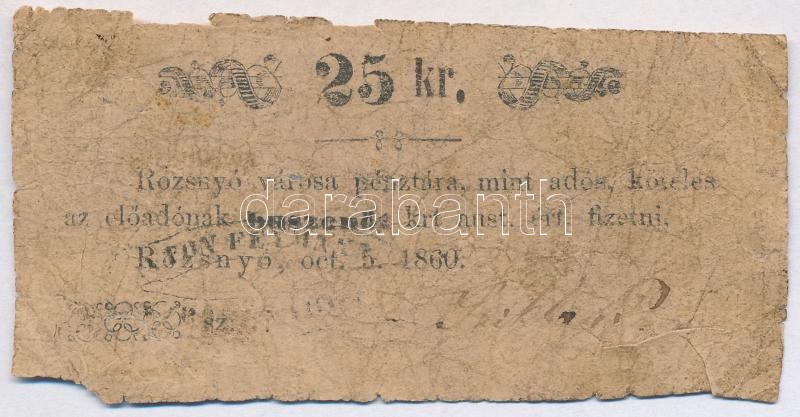 25 kr.
Rozsnyó városa pénztára, mint adós, köteles
az előadónak huszonöt krt aust. ért. fizetni.
Rozsnyó, oct. 5. 1860.
sz.
darabanth